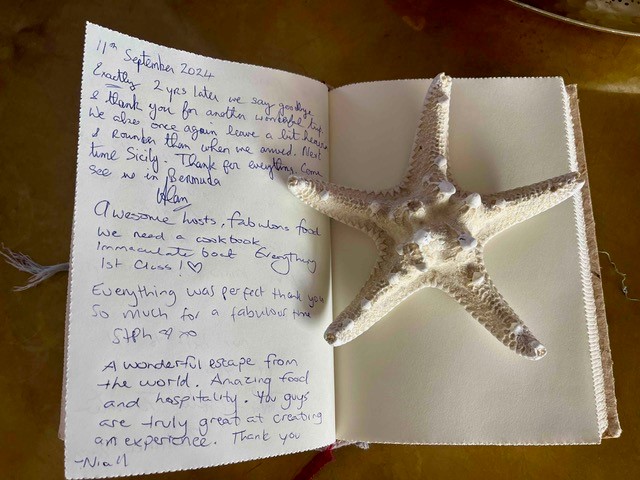 11th September 2024
Exactly 2 yrs later we say goodbye
& thank you for another wonderful trip.
We also once again leave a bit heavier
& rounder than when we arrived. Next
time Sicily. Thank for everything. Come
see us in Bermuda
Alan
Awesome hosts, fabulous food
We need a cookbook
Immaculate boat Everything
1st Class! ♡
Everything was perfect thank you
So much for a fabulous time
Stph xo
A wonderful escape from
the world. Amazing food
and hospitality. You guys
are truly great at creating
an experience. Thank you
-Niall